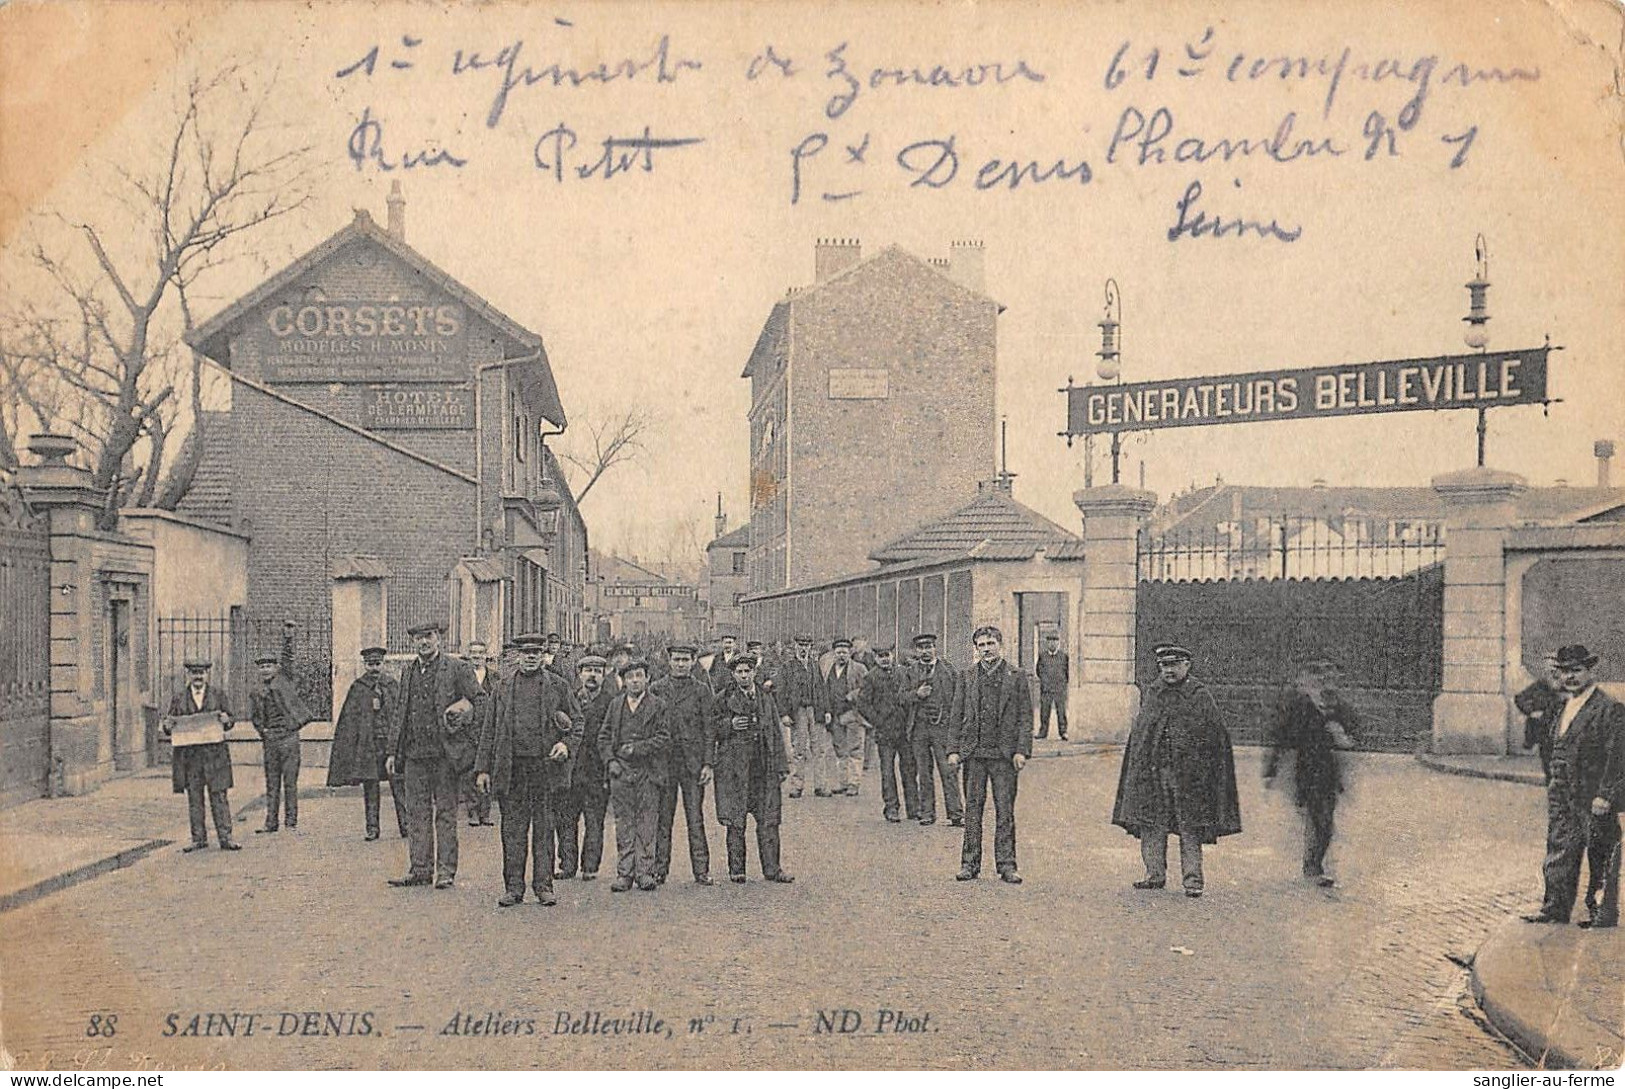 1er régiment de Zouave 61è compagnie
Rue Petit St Denis Chambre N 1
Seine
CORSETS
MODÈLES H. MONIN
HOTEL
DE L'ERMITAGE
GENERATEURS BELLEVILLE
GENERATEURS BELLEVILLE
88 SAINT-DENIS. — Ateliers Belleville, n° 1. — ND Phot.
sanglier-au-ferme